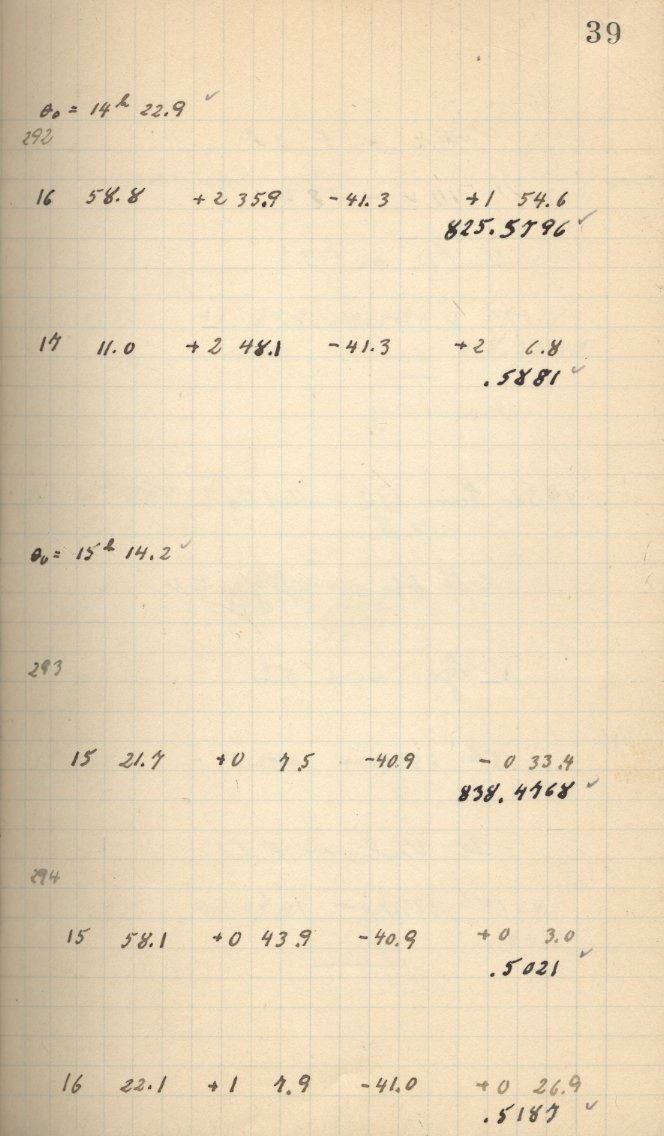 39
θ₀ = 14ʰ 22.9 ✓
292
16 58.8 +2 35.9 -41.3 +1 54.6
825.5796 ✓
17 11.0 +2 48.1 -41.3 +2 6.8
.5881 ✓
θ₀ = 15ʰ 14.2 ✓
293
15 21.7 +0 7.5 -40.9 - 0 33.4
838.4768 ✓
294
15 58.1 +0 43.9 -40.9 +0 3.0
.5021 ✓
16 22.1 +1 7.9 -41.0 +0 26.9
.5187 ✓